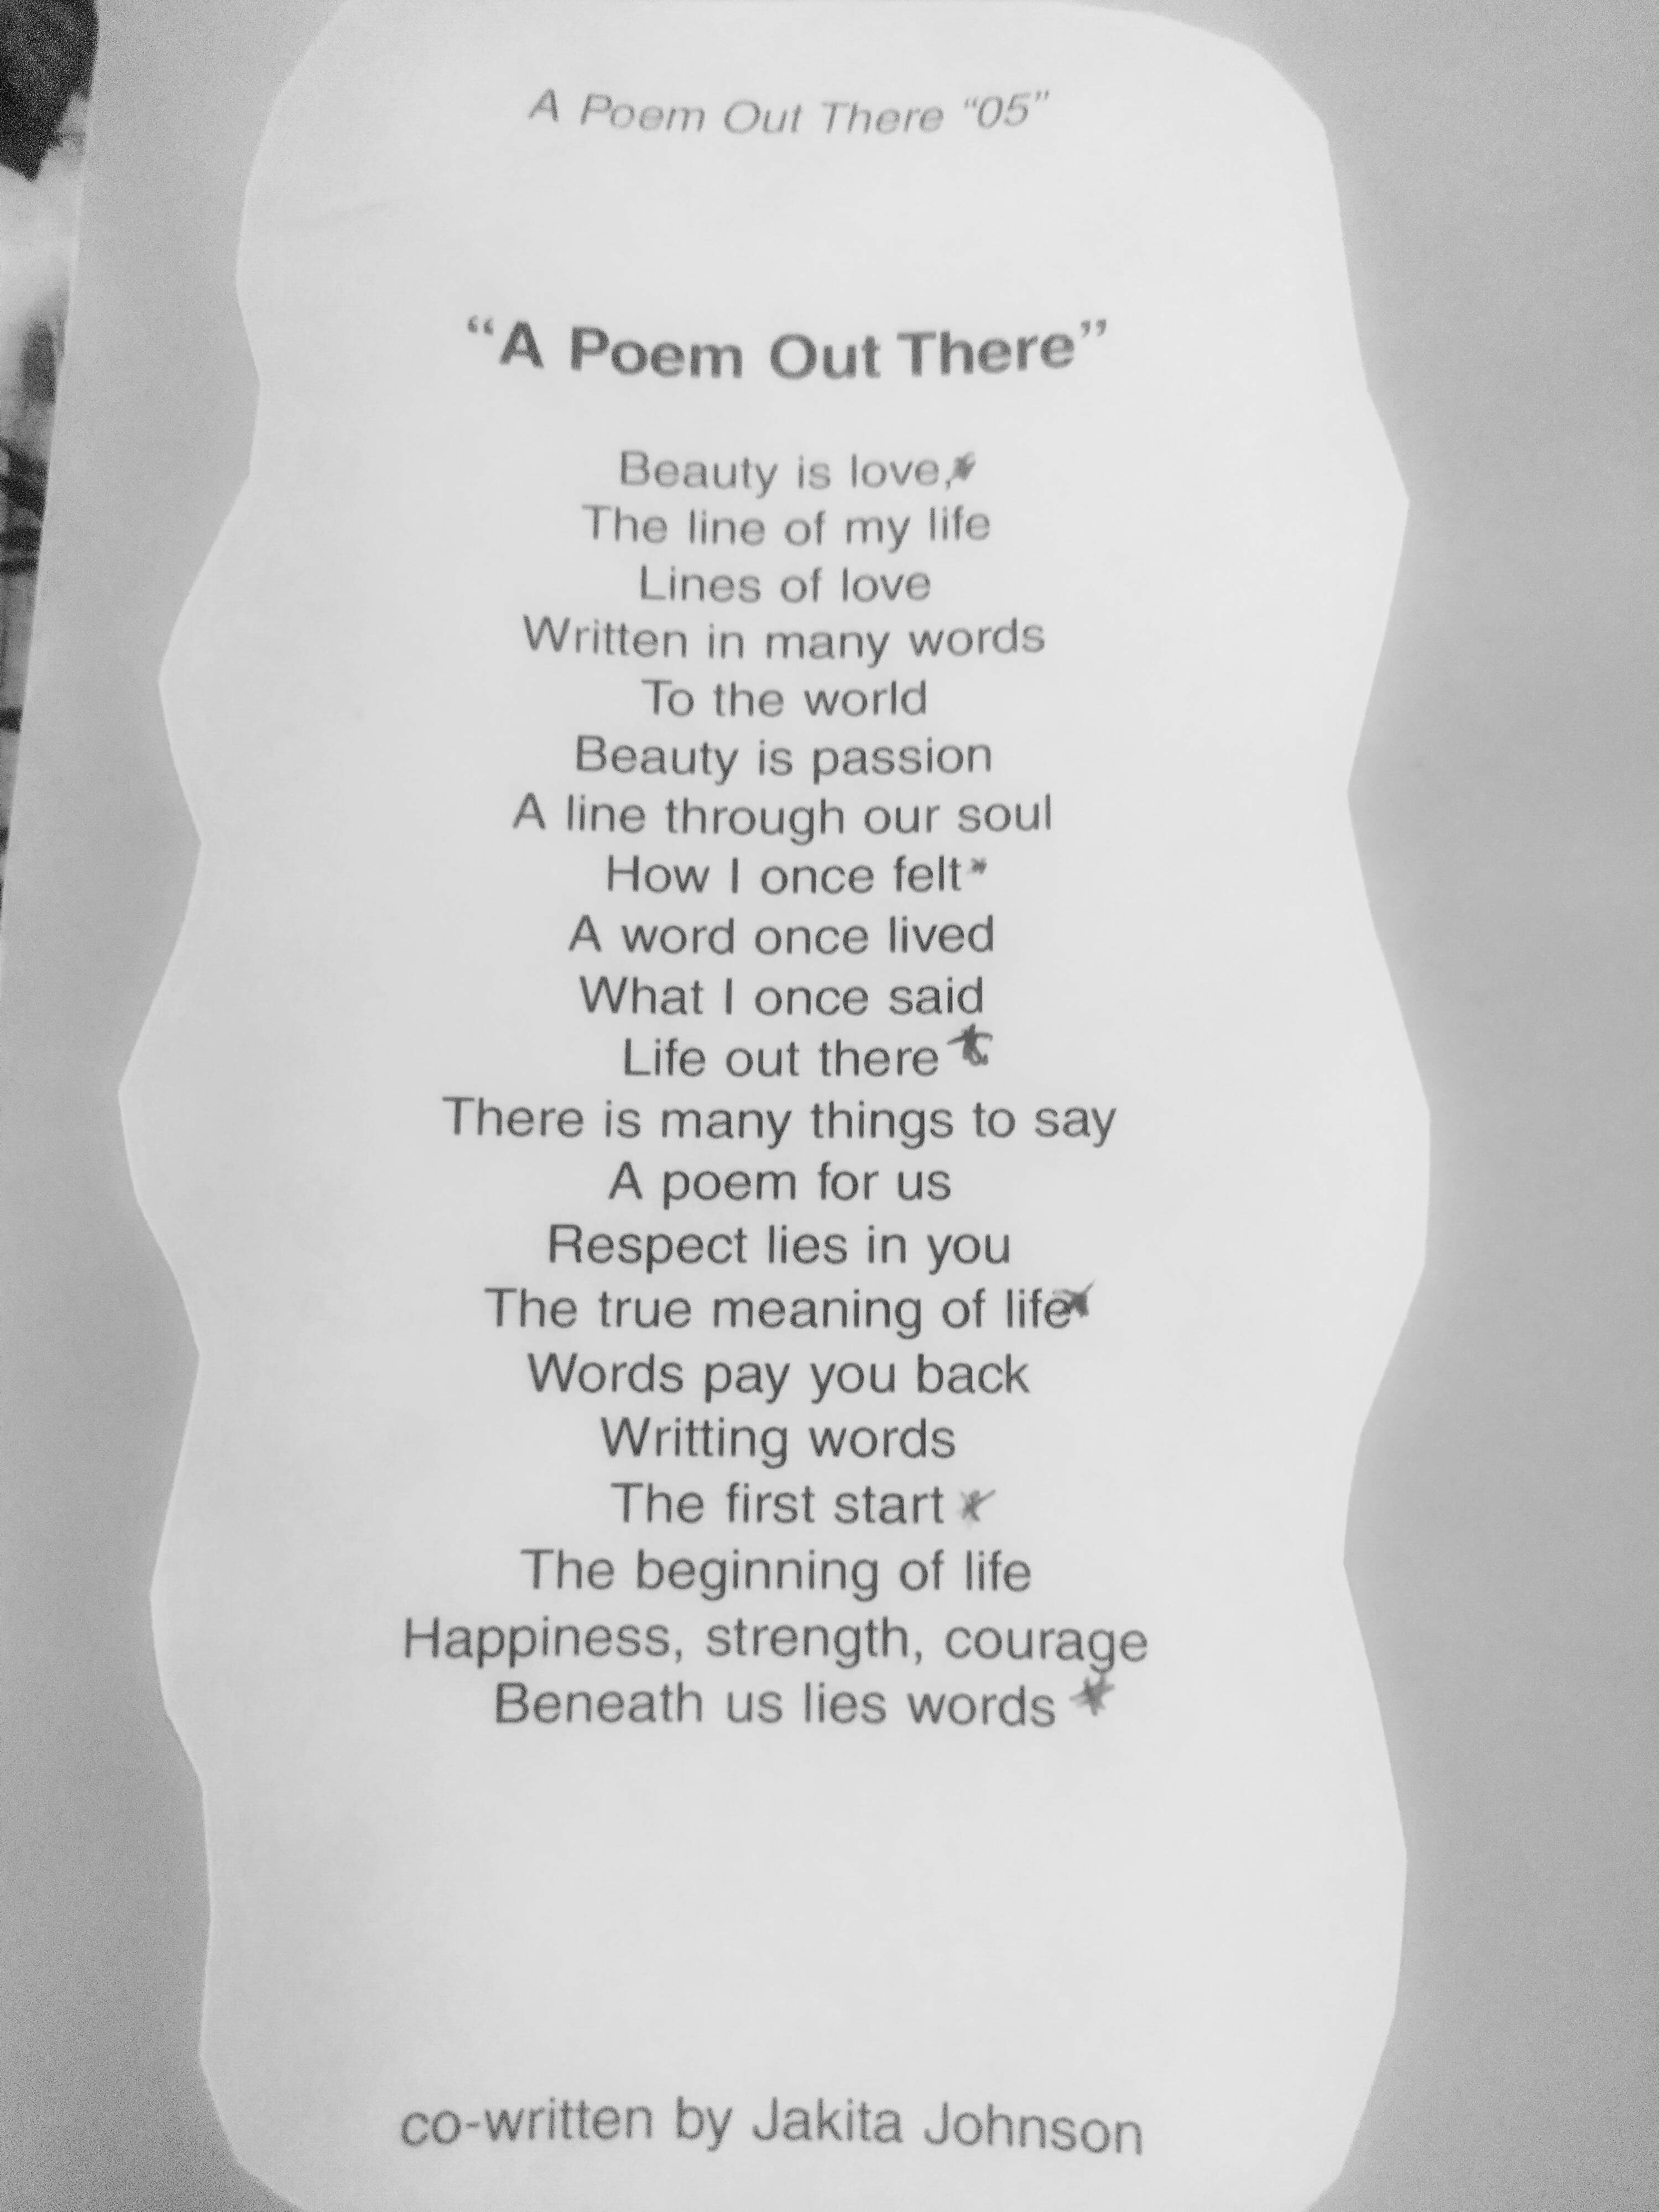 A Poem Out There “05”
“A Poem Out There”
Beauty is love,*
The line of my life
Lines of love
Written in many words
To the world
Beauty is passion
A line through our soul
How I once felt*
A word once lived
What I once said
Life out there *
There is many things to say
A poem for us
Respect lies in you
The true meaning of life*
Words pay you back
Writting words
The first start *
The beginning of life
Happiness, strength, courage
Beneath us lies words *
co-written by Jakita Johnson